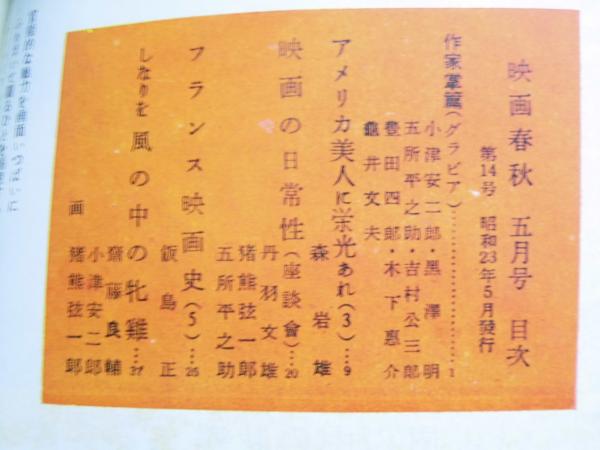 映画春秋 五月号 目次
第14号 昭和23年5月發行
作家掌篇(グラビア)…………1
小津安二郎・黒澤明
五所平之助・吉村公三郎
豊田四郎・木下惠介
龜井文夫
アメリカ美人に栄光あれ(3)…9
森岩雄
映画の日常性(座談會)…20
丹羽文雄
猪熊弦一郎
五所平之助
フランス映画史(5)…25
飯島正
しなりを 風の中の牝雞…37
齋藤良輔
小津安二郎
画 猪熊弦一郎